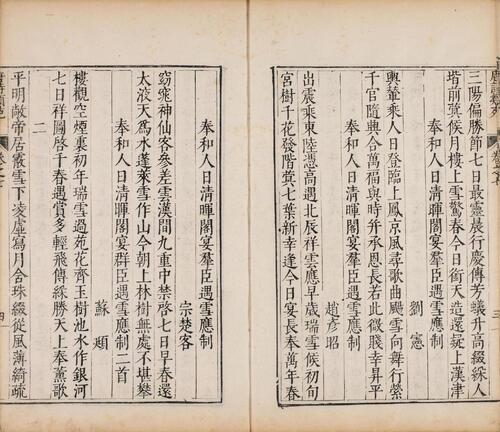 三陽偏勝節七日最靈辰行慶傳芳蟻升高綴綵人
堦前蓂候月樓上雪驚春今日銜天造還疑上漢津
奉和人日清暉閣宴羣臣遇雪應制
劉憲
輿輦乘人日登臨上鳳京風尋歌曲颺雪向舞行縈
千官隨興合萬福與時并承恩長若此微賤幸昇平
奉和人日清暉閣宴羣臣遇雪應制
趙彥昭
出震乘東陸憑高遇北辰祥雲應早歲瑞雪候初旬
宮樹千花發階蓂七葉新幸逢今日宴長奉萬年春
三
奉和人日清暉閣宴羣臣遇雪應制
宗楚客
窈窕神仙客參差雲漢間九重中禁啓七日早春還
太液天爲水蓬萊雪作山今朝上林樹無處不堪攀
奉和人日清暉閣宴群臣遇雪應制二首
蘇頲
樓觀空煙裏初年瑞雪過苑花齊玉樹池水作銀河
七日祥圖啓千春遇賞多輕飛傳綵勝天上奉薰歌
二
平明敞帝居霰雪下凌虛寫月含珠綴從風薄綺疏
四